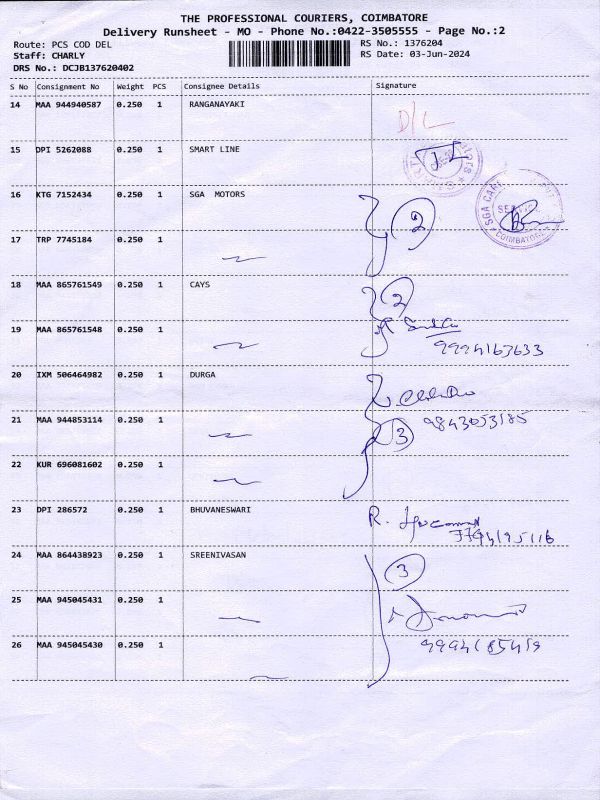 THE PROFESSIONAL COURIERS, COIMBATORE
Delivery Runsheet - MO - Phone No.:0422-3505555 - Page No.:2
Route: PCS COD DEL
RS No.: 1376204
Staff: CHARLY
RS Date: 03-Jun-2024
DRS No.: DCJB137620402
S No Consignment No Weight PCS Consignee Details Signature
14 MAA 944940587 0.250 1 RANGANAYAKI D/L
15 DPI 5262088 0.250 1 SMART LINE
16 KTG 7152434 0.250 1 SGA MOTORS 2
SGA CAR
COIMBATORE
17 TRP 7745184 0.250 1
18 MAA 865761549 0.250 1 CAYS 2
19 MAA 865761548 0.250 1
9994163633
20 IXM 506464982 0.250 1 DURGA
9843053185
21 MAA 944853114 0.250 1 3
22 KUR 696081602 0.250 1
23 DPI 286572 0.250 1 BHUVANESWARI R.
24 MAA 864438923 0.250 1 SREENIVASAN 3
25 MAA 945045431 0.250 1
26 MAA 945045430 0.250 1